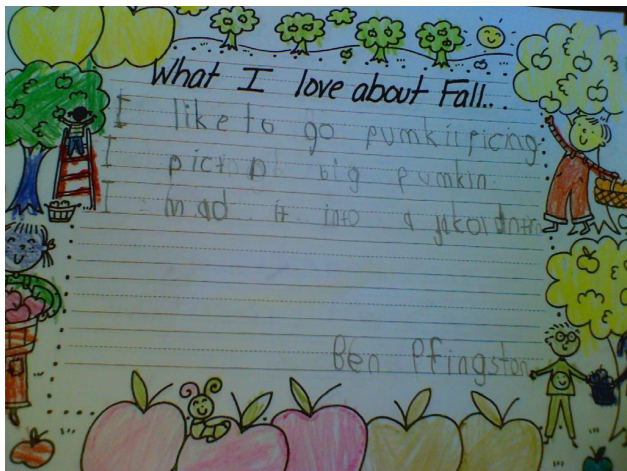 What I love about Fall..
I like to go pumkin picing
I pict a big pumkin
I mad it into a jakoldntrn
Ben Pfingston